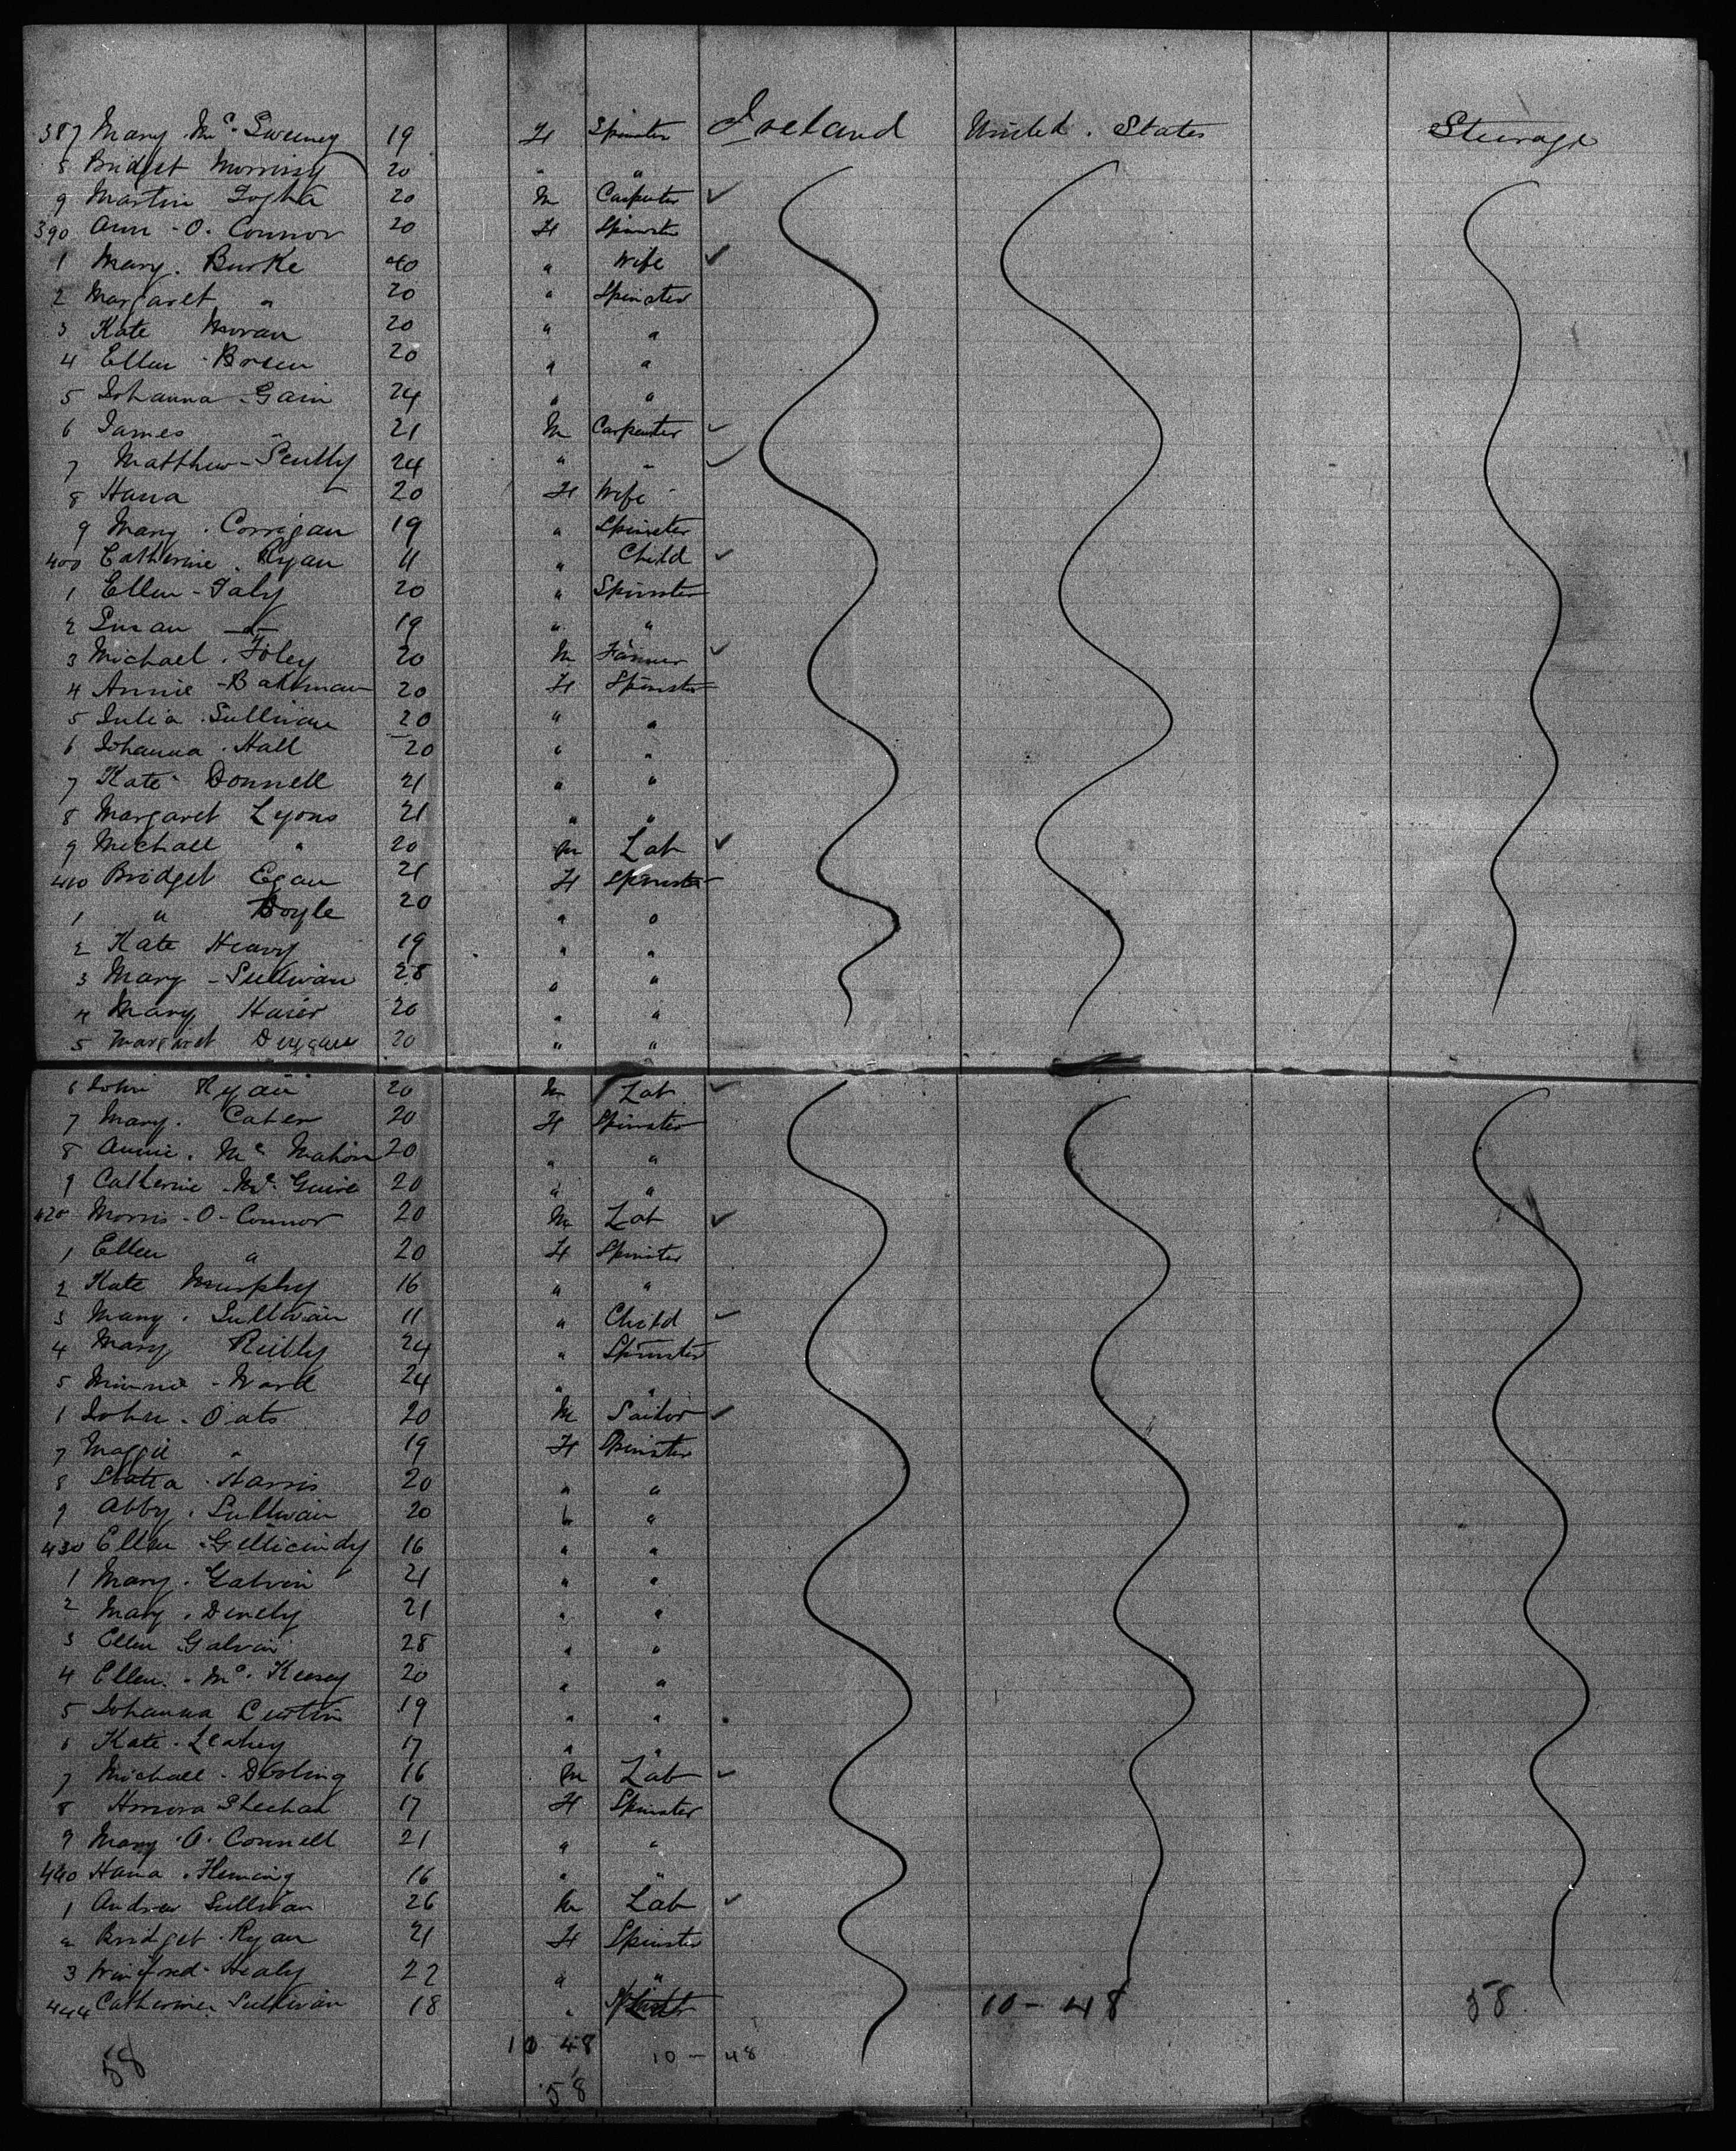 387 Mary Mc Sweeney 19 F Spinster Ireland United States Steerage
8 Bridget Morrissy 20 " "
9 Martin 20 M Carpenter ✓
390 Ann O. Connor 20 F Spinster
1 Mary. Burke 40 " Wife ✓
2 Margaret " 20 " Spinster
3 Kate Moran 20 " "
4 Ellen 20 " "
5 Johanna Gain 24 " "
6 James " 21 M Carpenter ✓
7 Matthew Scully 24 " " ✓
8 Hana " 20 F Wife
9 Mary. Corrigan 19 " Spinster
400 Catherine. Ryan 11 " Child ✓
1 Ellen 20 " Spinster
2 Susan " 19 " "
3 Michael. Foley 20 M Farmer ✓
4 Annie 20 F Spinster
5 Julia. Sullivan 20 " "
6 Johanna. Hall 20 " "
7 Kate Donnell 21 " "
8 Margaret Lyons 21 " "
9 Michael " 20 M Lab ✓
410 Bridget Egan 21 F Spinster
1 " Doyle 20 " "
2 Kate Heavy 19 " "
3 Mary Sullivan 28 " "
4 Mary 20 " "
5 Margaret 20 " "
6 John Ryan 20 M Lab ✓
7 Mary. 20 F Spinster
8 Annie. Mc Mahon 20 " "
9 Catherine Mc Guire 20 " "
420 Morris O Connor 20 M Lab ✓
1 Ellen " 20 F Spinster
2 Kate Murphy 16 " "
3 Mary. Sullivan 11 " Child ✓
4 Mary Reilly 24 " Spinster
5 Minnie Ward 24 " "
1 John Oats 20 M ✓
7 Maggie " 19 F Spinster
8 Statia. Harris 20 " "
9 Abby. Sullivan 20 " "
430 Ellen 16 " "
1 Mary. Galvin 21 " "
2 Mary. 21 " "
3 Ellen Galvin 28 " "
4 Ellen. Mc. 20 " "
5 Johanna Curtin 19 " "
6 Kate Leahy 17 " "
7 Michael Dooling 16 M Lab ✓
8 Honora Sheehan 17 F Spinster
9 Mary. O. Connell 21 " "
440 Hana. Fleming 16 " "
1 Andrew Sullivan 26 M Lab ✓
2 Bridget. Ryan 21 F Spinster
3 Winifred Healy 22 " "
444 Catherine Sullivan 18 " 10-48 58
10 48 10-48
58
58